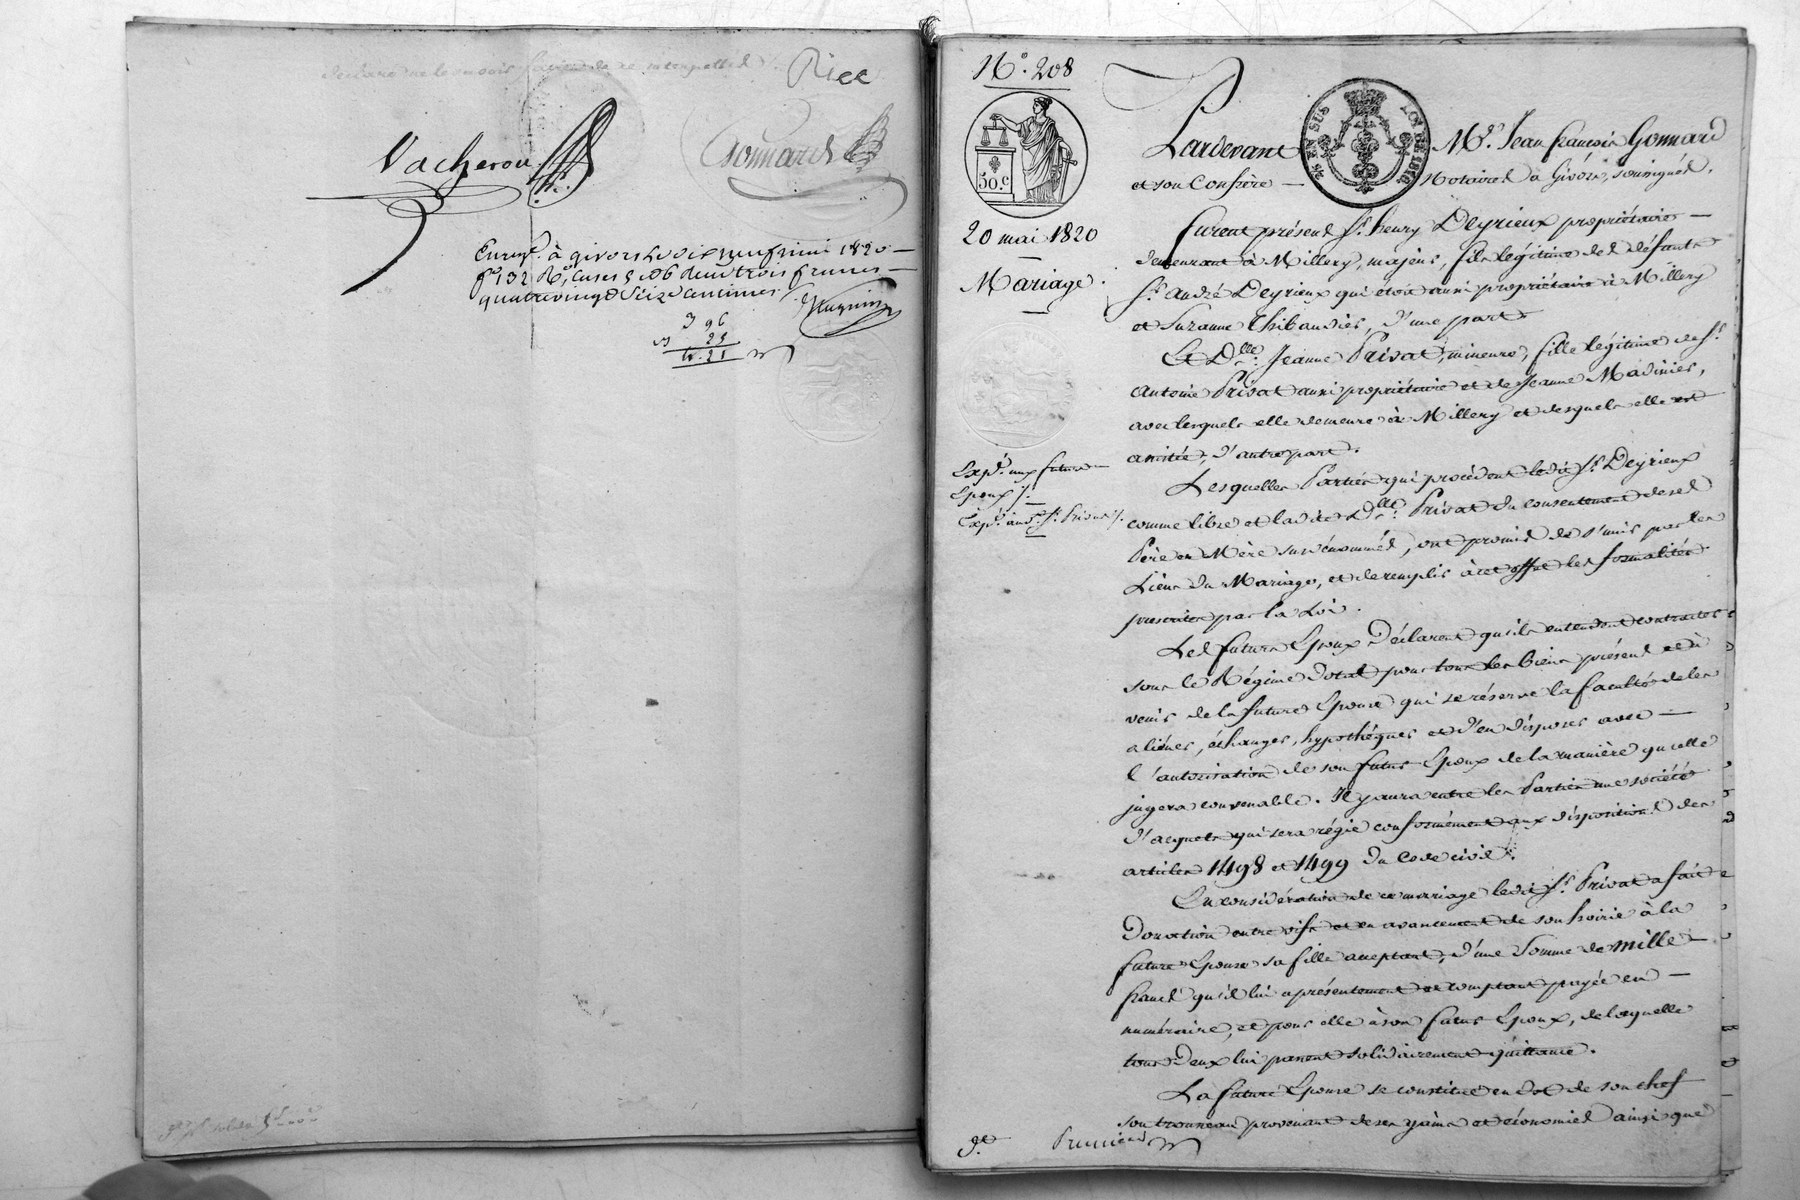 déclaré ne le savoir de ce interpellé
Rice
Vacheron
Gonnard
Enreg.é à givors le dix neuf mai 1820
f.o 132 R.o, Cases 5 et 6 reçu trois francs
quatrevingt Seize centimes.
3 96
25
4. 21
N.o 208
50.c
20 mai 1820
Mariage.
Exp.on aux futurs
Epoux ./.
Exp.on aud. S.r Privat ./.
Pardevant M.e Jean francois Gonnard
et son Confrère Notaires à Givors, soussignés,
furent présens S.r henry Deyrieux propriétaire
demeurant à Millery, majeur, fils légitime de défunts
S.r andré Deyrieux qui étoit aussi propriétaire à Millery
et Suzanne Thibaudier, d'une part
Et D.lle Jeanne Privat, mineure, fille légitime de S.r
antoine Privat aussi propriétaire et de Jeanne Madinier,
avec lesquels elle demeure à Millery et desquels elle est
assistée, d'autre part.
Lesquelles Parties qui procèdent ledit S.r Deyrieux
comme libre et ladite D.lle Privat du consentement de ses
Père et Mère susdénommés, ont promis de s'unir par les
Liens du Mariage, et de remplir à cet effet les formalités
prescrites par la Loi.
Les futurs Epoux déclarent qu'ils entendent contracter
sous le Régime dotal pour tous les biens présens et à
venir de la future Epouse qui se réserve la faculté de les
aliéner, échanger, hypothéquer et d'en disposer avec
l'autorisation de son futur Epoux de la manière qu'elle
jugera convenable. Il y aura entre les Parties une société
d'acquets qui sera régie conformément aux dispositions des
articles 1498 et 1499 du Code civil.
En considération de ce mariage ledit S.r Privat a fait
Donation entre vifs et en avancement de son hoirie à la
future Epouse sa fille acceptant, d'une Somme de mille
francs qu'il lui a présentement et comptant payée en
numéraire, et pour elle à son futur Epoux, de laquelle
tous deux lui passent solidairement quittance.
La future Epouse se constitue en dot de son chef
son trousseau provenant de ses gains et économies ainsi que